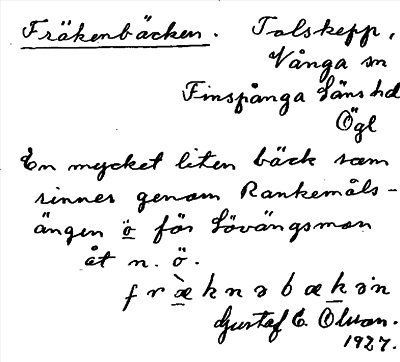 Fräkenbäcken. Tolskepp,
Vånga sn
Finspånga Läns hd
Ögl
En mycket liten bäck som
rinner genom Rankemåls-
ängen ö för Lövängsmon
åt n. ö.
f r æ̀ k n ə b æ k ə n
Gustaf E. Olsson.
1927.